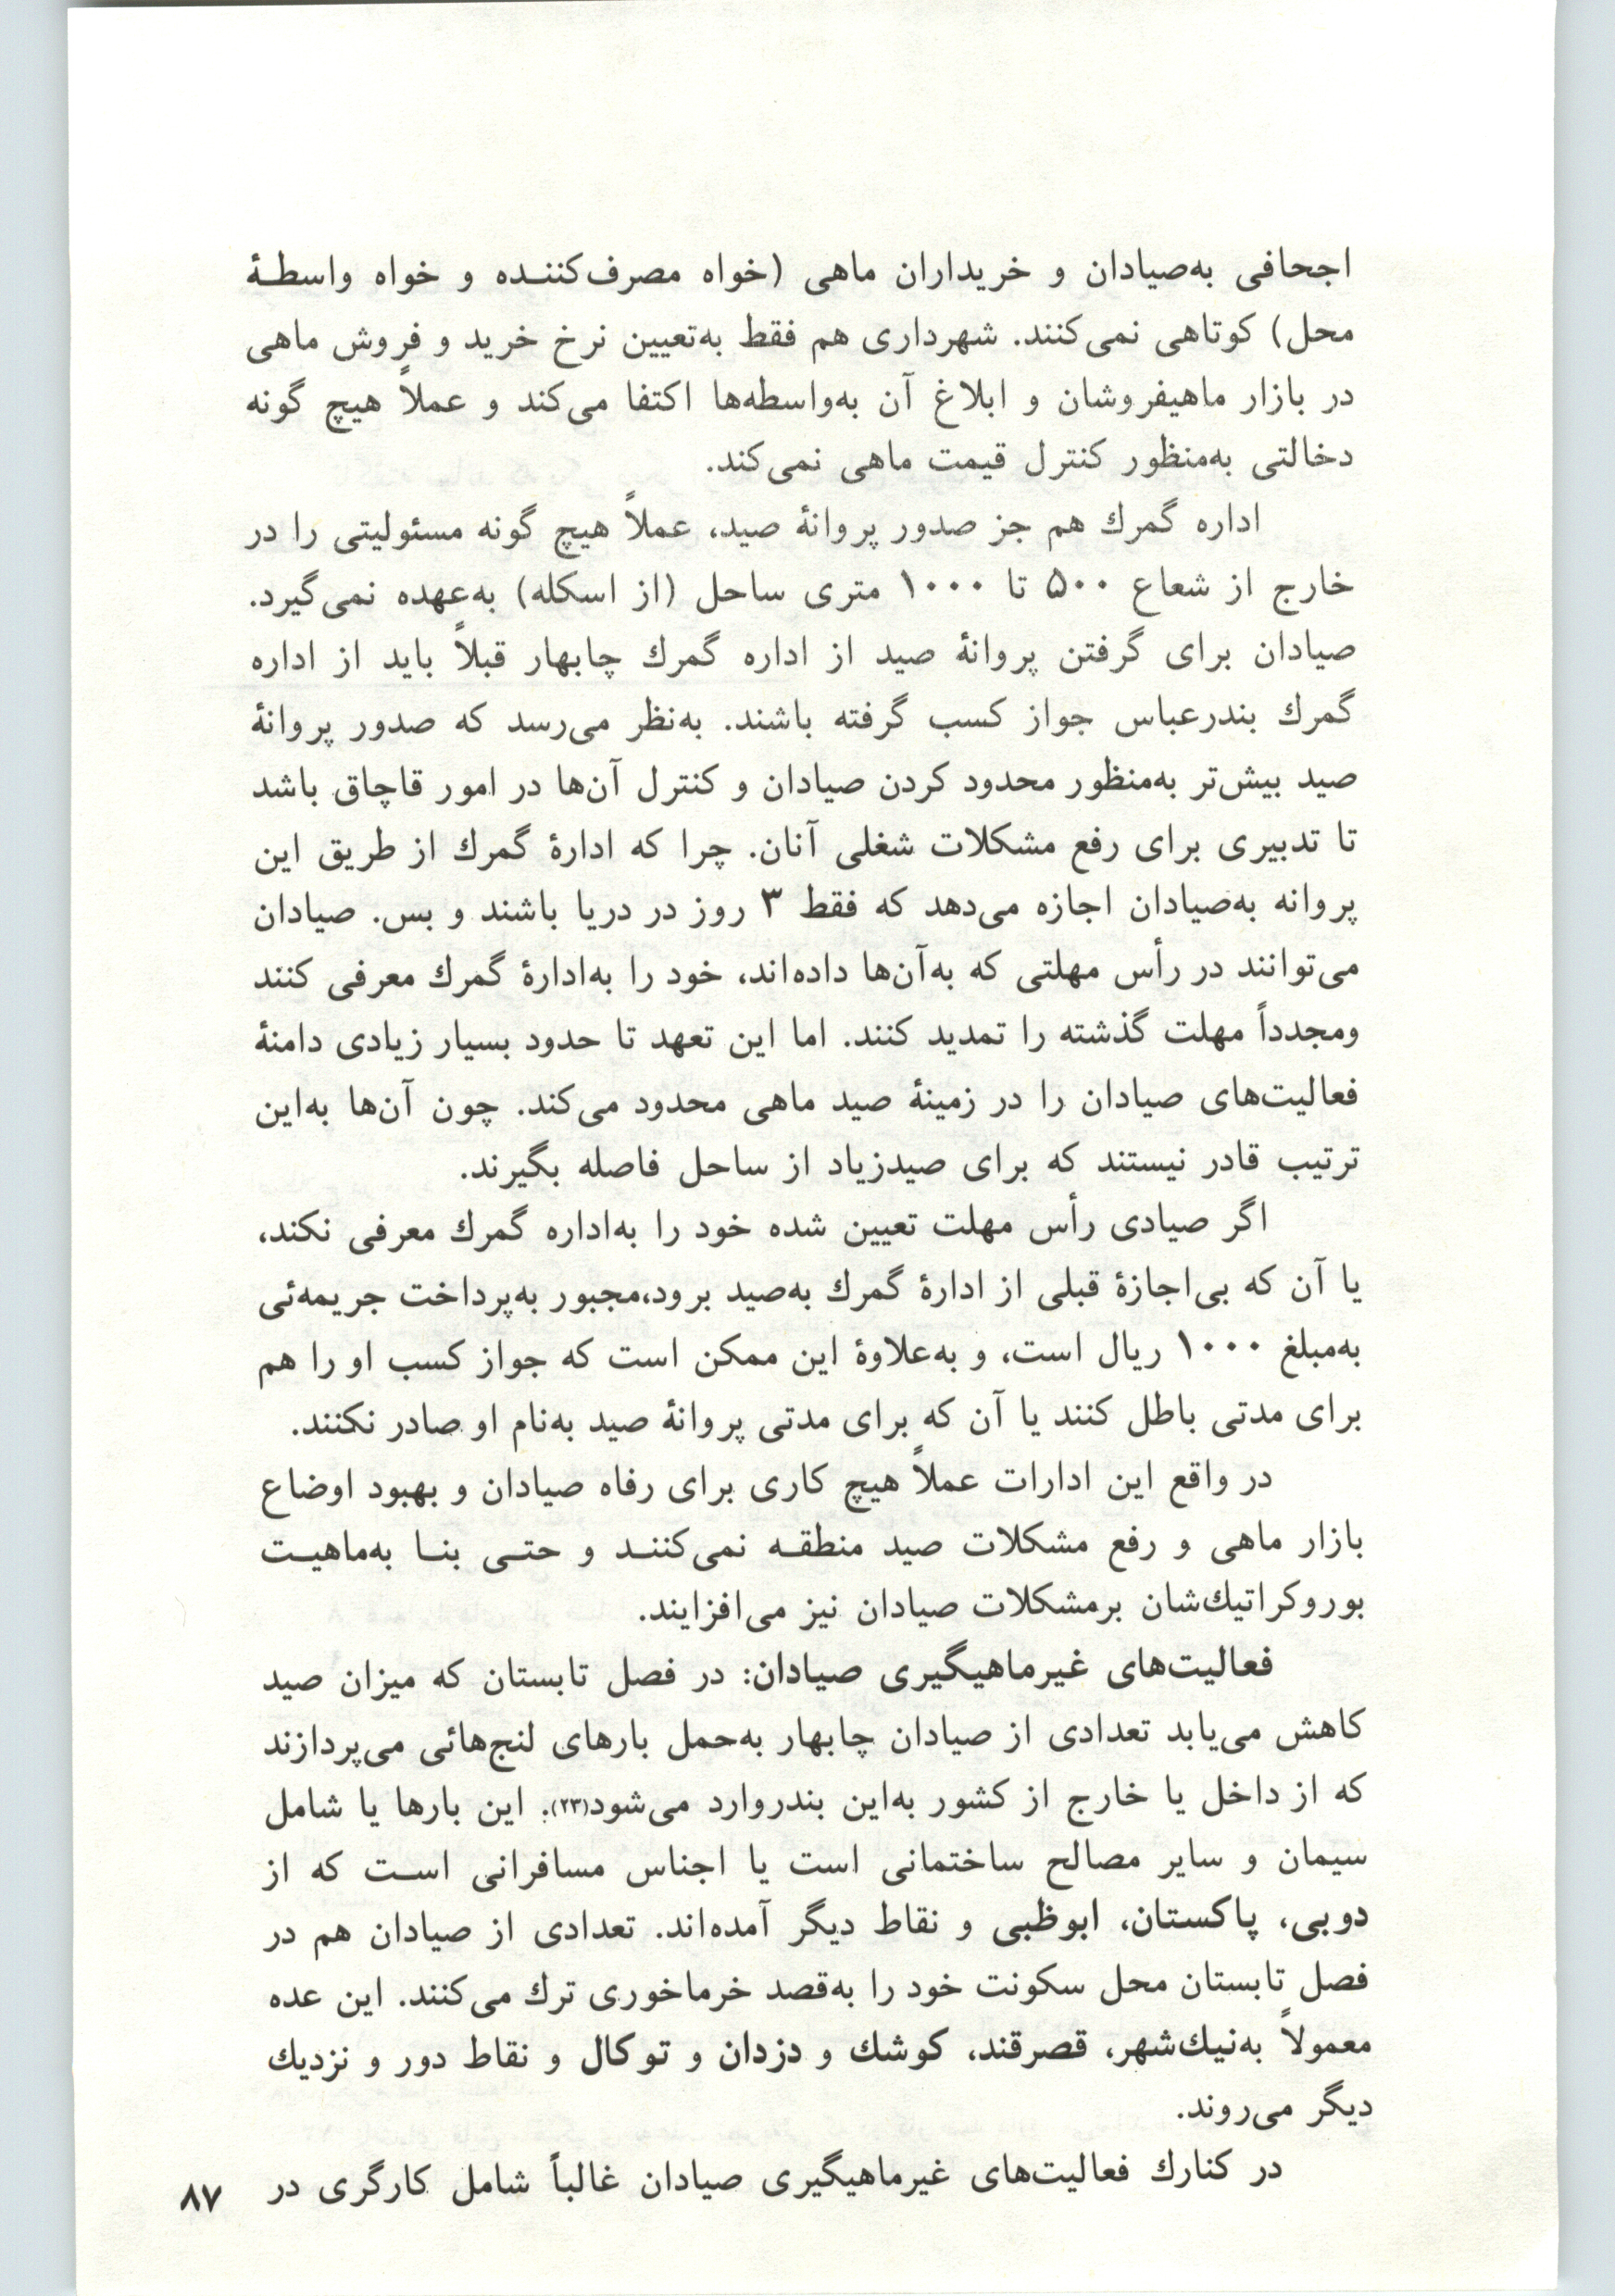 اجحافی به‌صیادان و خریداران ماهی (خواه مصرف‌کننده و خواه واسطهٔ
محل) کوتاهی نمی‌کنند. شهرداری هم فقط به‌تعیین نرخ خرید و فروش ماهی
در بازار ماهیفروشان و ابلاغ آن به‌واسطه‌ها اکتفا می‌کند و عملاً هیچ گونه
دخالتی به‌منظور کنترل قیمت ماهی نمی‌کند.
اداره گمرك هم جز صدور پروانهٔ صید، عملاً هیچ گونه مسئولیتی را در
خارج از شعاع ۵۰۰ تا ۱۰۰۰ متری ساحل (از اسکله) به‌عهده نمی‌گیرد.
صیادان برای گرفتن پروانهٔ صید از اداره گمرك چابهار قبلاً باید از اداره
گمرك بندرعباس جواز کسب گرفته باشند. به‌نظر می‌رسد که صدور پروانهٔ
صید بیش‌تر به‌منظور محدود کردن صیادان و کنترل آن‌ها در امور قاچاق باشد
تا تدبیری برای رفع مشکلات شغلی آنان. چرا که ادارهٔ گمرك از طریق این
پروانه به‌صیادان اجازه می‌دهد که فقط ۳ روز در دریا باشند و بس. صیادان
می‌توانند در رأس مهلتی که به‌آن‌ها داده‌اند، خود را به‌ادارهٔ گمرك معرفی کنند
ومجدداً مهلت گذشته را تمدید کنند. اما این تعهد تا حدود بسیار زیادی دامنهٔ
فعالیت‌های صیادان را در زمینهٔ صید ماهی محدود می‌کند. چون آن‌ها به‌این
ترتیب قادر نیستند که برای صیدزیاد از ساحل فاصله بگیرند.
اگر صیادی رأس مهلت تعیین شده خود را به‌اداره گمرك معرفی نکند،
یا آن که بی‌اجازهٔ قبلی از ادارهٔ گمرك به‌صید برود،مجبور به‌پرداخت جریمه‌ئی
به‌مبلغ ۱۰۰۰ ریال است، و به‌علاوهٔ این ممکن است که جواز کسب او را هم
برای مدتی باطل کنند یا آن که برای مدتی پروانهٔ صید به‌نام او صادر نکنند.
در واقع این ادارات عملاً هیچ کاری برای رفاه صیادان و بهبود اوضاع
بازار ماهی و رفع مشکلات صید منطقه نمی‌کنند و حتی بنا به‌ماهیت
بوروکراتیك‌شان برمشکلات صیادان نیز می‌افزایند.
فعالیت‌های غیرماهیگیری صیادان: در فصل تابستان که میزان صید
کاهش می‌یابد تعدادی از صیادان چابهار به‌حمل بارهای لنج‌هائی می‌پردازند
که از داخل یا خارج از کشور به‌این بندروارد می‌شود(۲۳). این بارها یا شامل
سیمان و سایر مصالح ساختمانی است یا اجناس مسافرانی است که از
دوبی، پاکستان، ابوظبی و نقاط دیگر آمده‌اند. تعدادی از صیادان هم در
فصل تابستان محل سکونت خود را به‌قصد خرماخوری ترك می‌کنند. این عده
معمولاً به‌نیك‌شهر، قصرقند، کوشك و دزدان و توکال و نقاط دور و نزدیك
دیگر می‌روند.
در کنارك فعالیت‌های غیرماهیگیری صیادان غالباً شامل کارگری در
۸۷